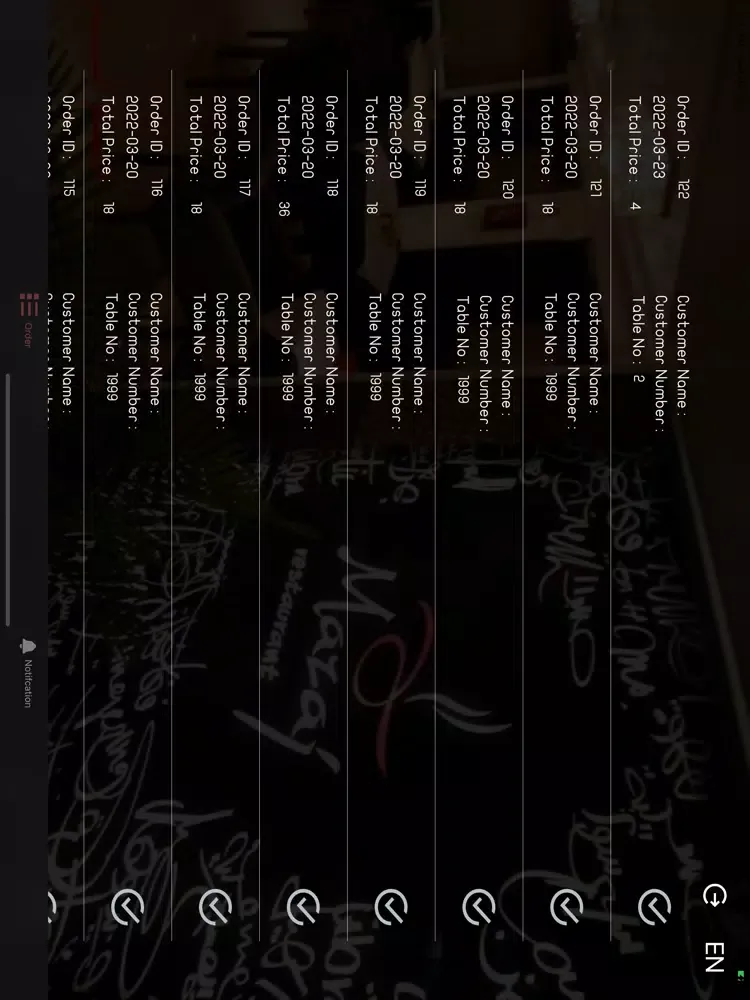 EN
Order ID : 122
2022-03-23
Total Price : 4
Customer Name :
Customer Number :
Table No : 2
Order ID : 121
2022-03-20
Total Price : 18
Customer Name :
Customer Number :
Table No : 1999
Order ID : 120
2022-03-20
Total Price : 18
Customer Name :
Customer Number :
Table No : 1999
Order ID : 119
2022-03-20
Total Price : 18
Customer Name :
Customer Number :
Table No : 1999
Order ID : 118
2022-03-20
Total Price : 36
Customer Name :
Customer Number :
Table No : 1999
Order ID : 117
2022-03-20
Total Price : 18
Customer Name :
Customer Number :
Table No : 1999
Order ID : 116
2022-03-20
Total Price : 18
Customer Name :
Customer Number :
Table No : 1999
Order ID : 115
Customer Name :
Customer Number :
Mazaj
restaurant
Order
Notifcation